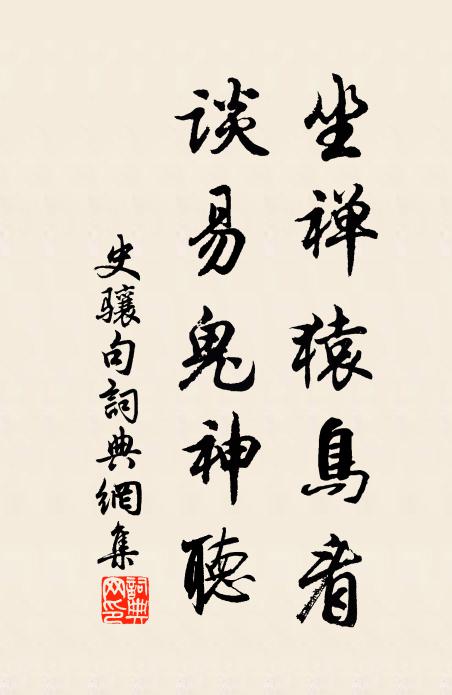 坐禅猿鳥看
談易鬼神聽
史骧句詞典網集
詞典網印